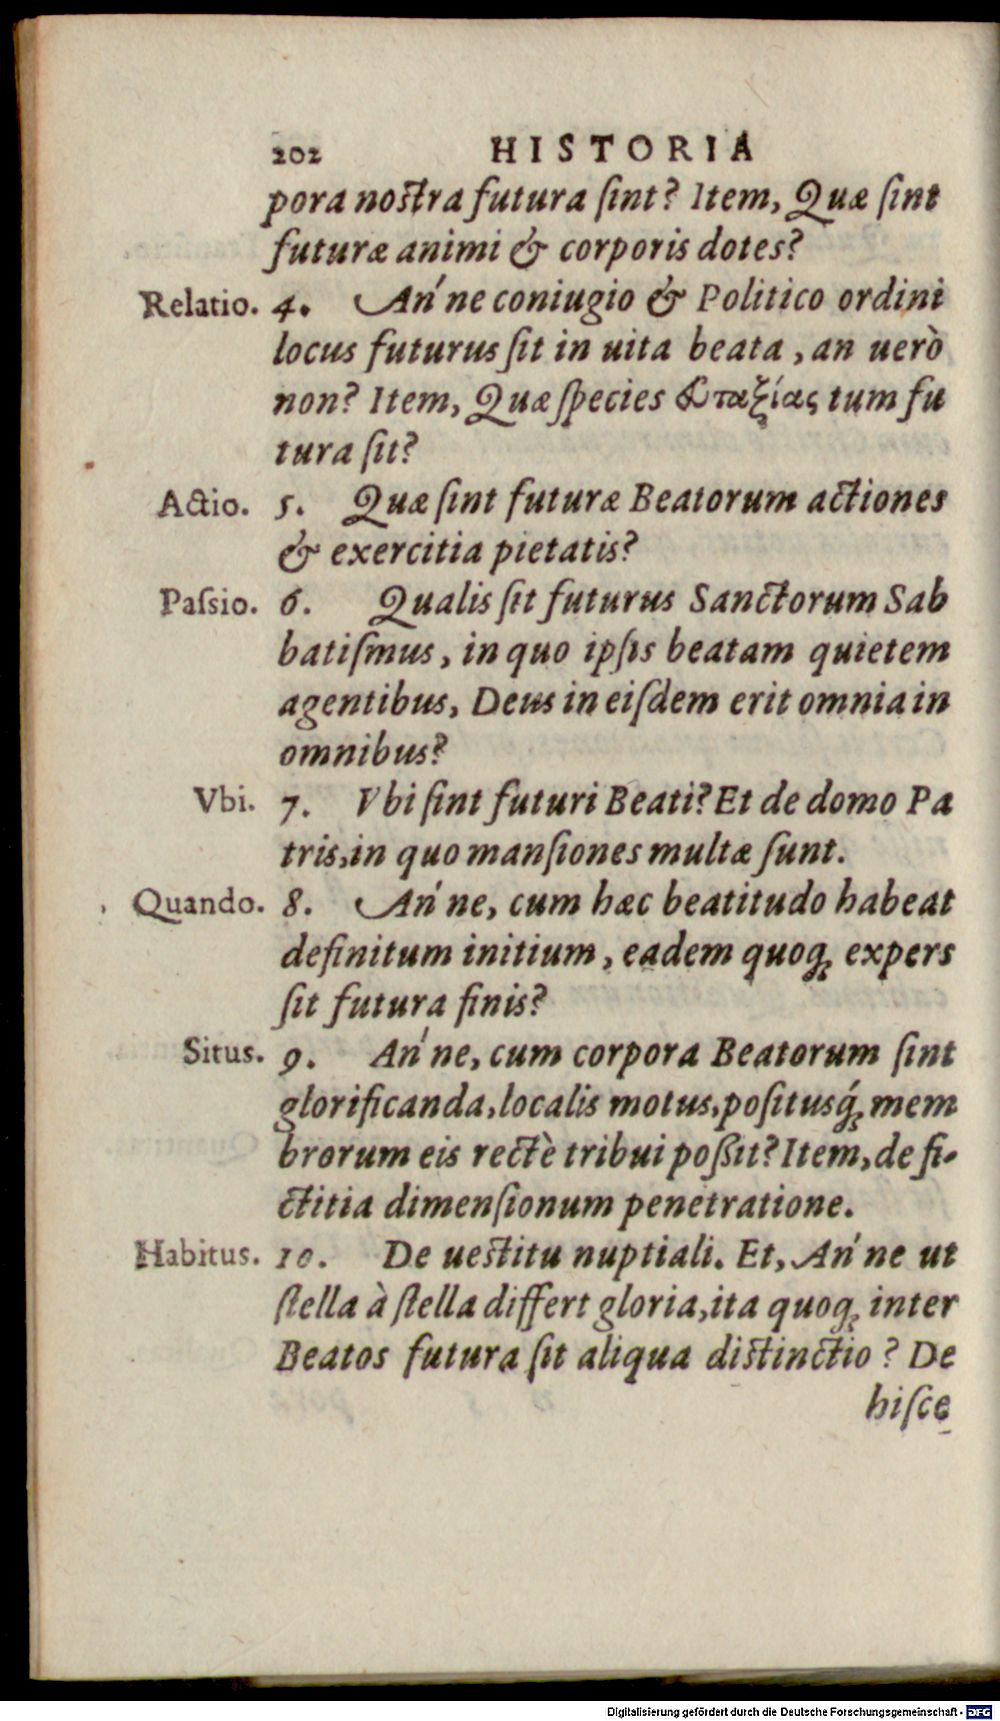 202 HISTORIA
pora noſtra futura ſint? Item, Quæ ſint
futuræ animi & corporis dotes?
Relatio. 4. An´ne coniugio & Politico ordini
locus futurus ſit in uita beata, an uerò
non? Item, Quæ ſpecies ἐυταξίας tum fu
tura ſit?
Actio. 5. Quæ ſint futuræ Beatorum actiones
& exercitia pietatis?
Paſsio. 6. Qualis ſit futurus Sanctorum Sab
batiſmus, in quo ipſis beatam quietem
agentibus, Deus in eiſdem erit omnia in
omnibus?
Vbi. 7. Vbi ſint futuri Beati? Et de domo Pa
tris, in quo manſiones multæ ſunt.
Quando. 8. An´ne, cum hæc beatitudo habeat
definitum initium, eadem quoq; expers
ſit futura finis?
Situs. 9. An´ne, cum corpora Beatorum ſint
glorificanda, localis motus, poſitusq́; mem
brorum eis rectè tribui poßit? Item, de fi-
ctitia dimenſionum penetratione.
Habitus. 10. De ueſtitu nuptiali. Et, An´ne ut
ſtella à ſtella differt gloria, ita quoq; inter
Beatos futura ſit aliqua diſtinctio? De
hiſce
Digitalisierung gefördert durch die Deutsche Forschungsgemeinschaft - DFG